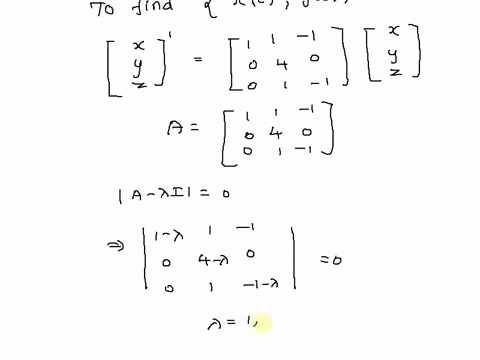 To find { x(t), y(t),
[ x y z ]' = [ 1 1 -1 0 4 0 0 1 -1 ] [ x y z ]
A = [ 1 1 -1 0 4 0 0 1 -1 ]
|A-λI| = 0
⇒ | 1-λ 1 -1 0 4-λ 0 0 1 -1-λ | = 0
λ = 1,